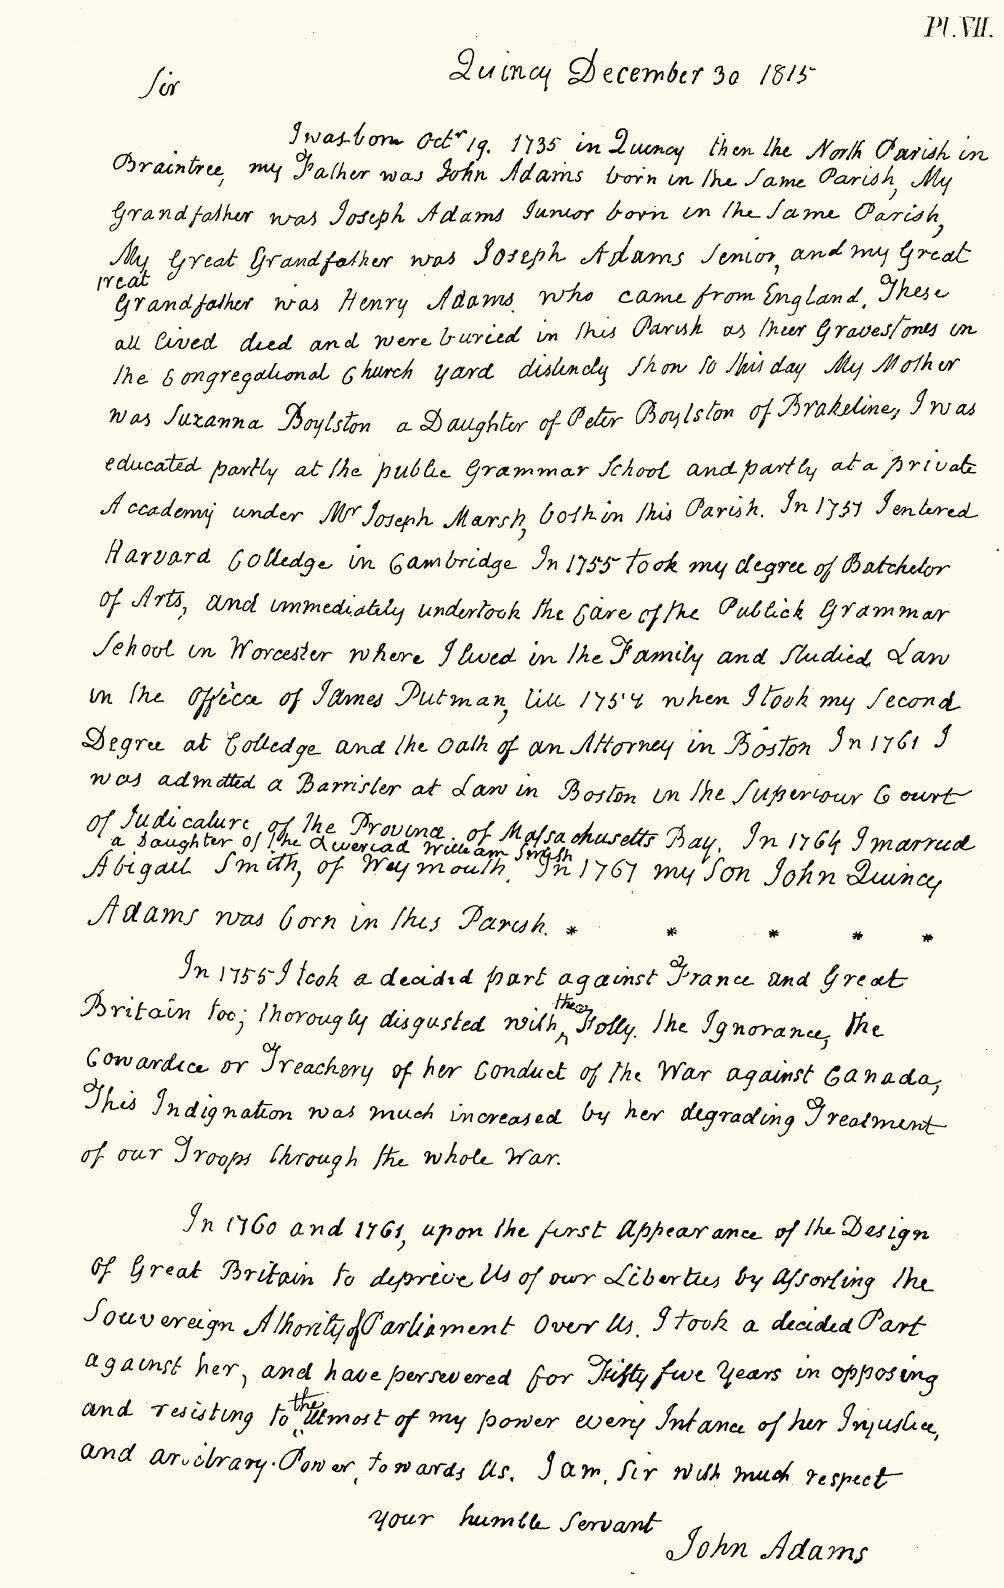 Pl. VII.
Quincy December 30 1815
Sir
I was born Octr 19. 1735 in Quincy then the North Parish in
Braintree, my Father was John Adams born in the Same Parish, My
Grandfather was Joseph Adams Junior born in the Same Parish,
My Great Grandfather was Joseph Adams Senior, and my Great
reat
Grandfather was Henry Adams. who came from England. These
all lived died and were buried in this Parish as their Gravestones in
the Congregational Church yard distinctly Shon to this day My Mother
was Suzanna Boylston a Daughter of Peter Boylston of Brakeline, I was
educated partly at the public Grammar School and partly at a private
Accademy under Mr Joseph Marsh, both in this Parish. In 1751 I entered
Harvard Colledge in Cambridge In 1755 took my degree of Batchelor
of Arts, and immediately undertook the Care of the Publick Grammar
School in Worcester where I lived in the Family and Studied Law
in the Office of James Putman, till 1758 when I took my Second
Degree at Colledge and the Oath of an Attorney in Boston In 1761 I
was admitted a Barrister at Law in Boston in the Superiour Court
of Judicature of the Province. of Massachusetts Bay. In 1764 I married
a Daughter of the William Smith
Abigail Smith, of Weymouth. In 1767 my Son John Quincy
Adams was born in this Parish. * * * * *
In 1755 I took a decided part against France and Great
Britain too; thorougly disgusted with
the
Folly. the Ignorance, the
Cowardice or Treachery of her Conduct of the War against Canada,
This Indignation was much increased by her degrading Treatment
of our Troops through the whole War.
In 1760 and 1761, upon the first Appearance of the Design
of Great Britain to deprive Us of our Liberties by Assorting the
Souvereign Athority of Parliament Over Us. I took a decided Part
against her, and have persevered for Fifty five Years in opposing
and resisting to
the
Utmost of my power every Intance of her Injustice,
and arbitrary. Power, towards Us. I am, Sir with much respect
your humble Servant
John Adams